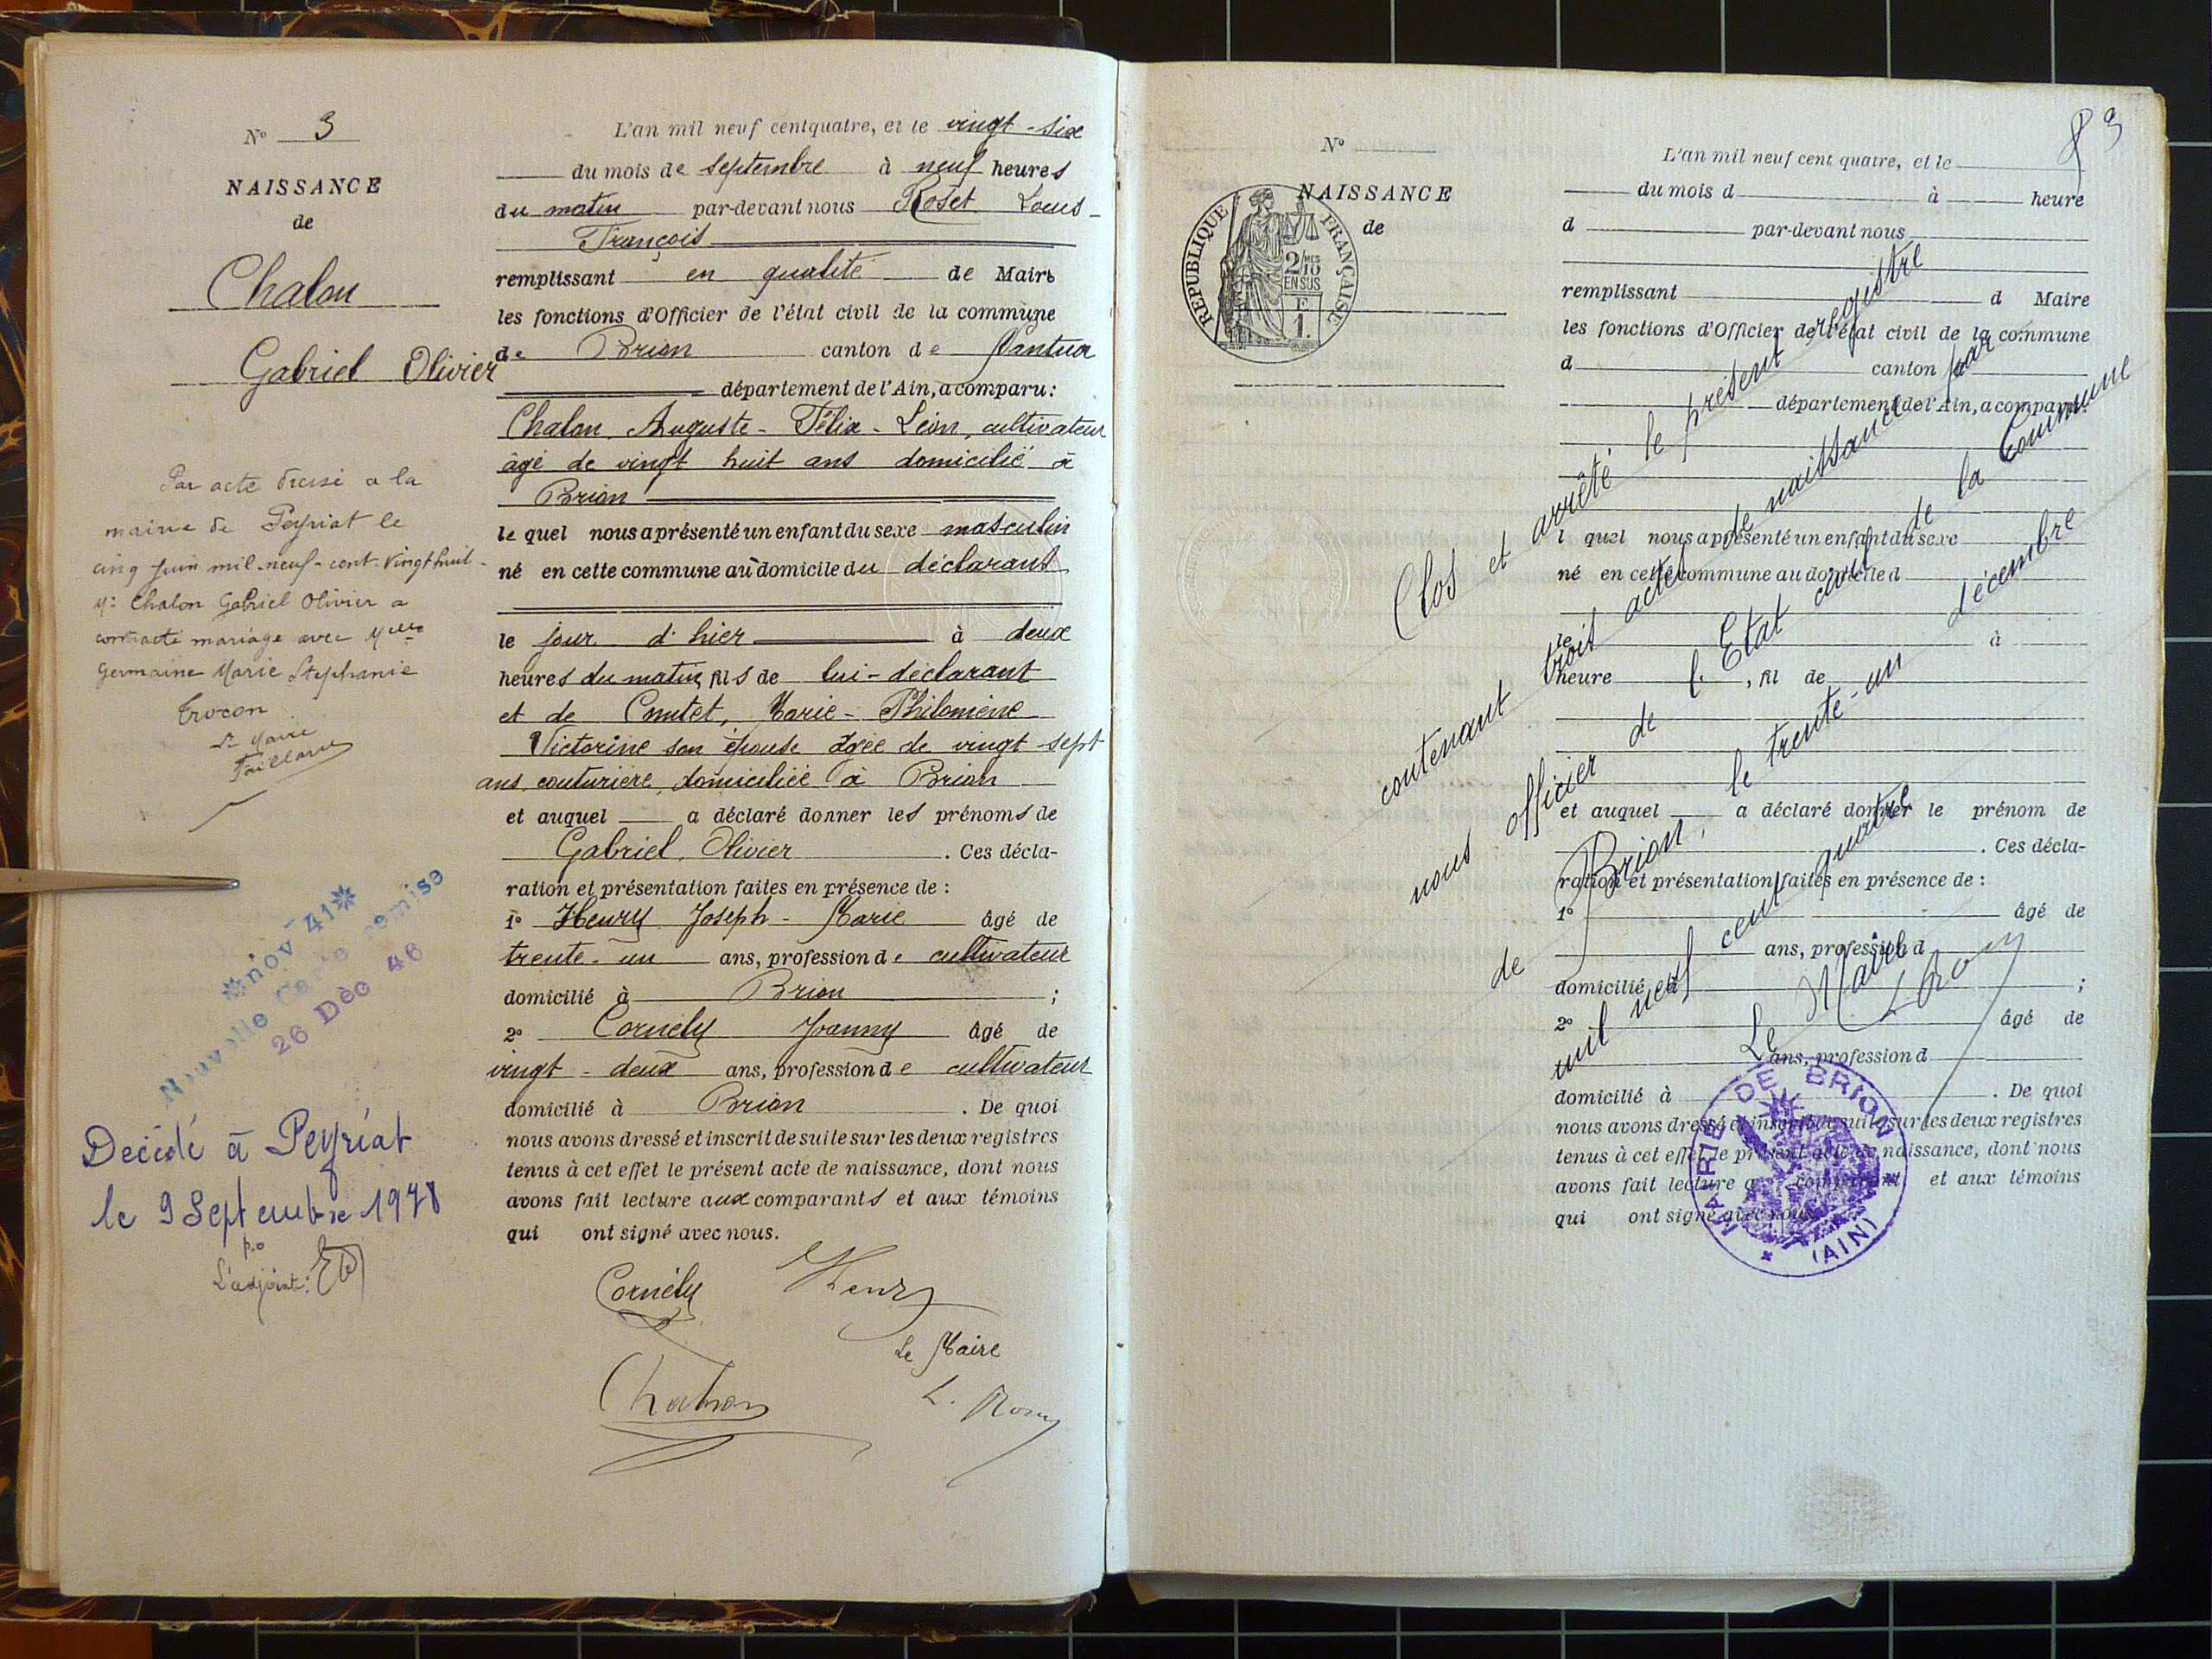 N° 3
NAISSANCE
de
Chalon
Gabriel Olivier
Par acte dressé a la
mairie de Peyriat le
cinq juin mil-neuf-cent-vingt huit
Mr Chalon Gabriel Olivier a
contracté mariage avec Melle
Germaine Marie Stephanie
Trocon
Le Maire
nov 41
Nouvelle Carte remise
26 Déc 46
Décédé à Peyriat
le 9 Septembre 1978
p.o
L'adjoint:
L'an mil neuf cent quatre, et le vingt-six
du mois de septembre à neuf heures
du matin par-devant nous Roset Louis-
François
remplissant en qualité de Maire
les fonctions d'Officier de l'état civil de la commune
de Brion canton de Nantua
département de l'Ain, a comparu:
Chalon, Auguste-Félix-Léon, cultivateur
âgé de vingt huit ans domicilié à
Brion
le quel nous a présenté un enfant du sexe masculin
né en cette commune au domicile du déclarant
le jour d'hier à deux
heures du matin, fils de lui-déclarant
et de Comtet, Marie-Philomène
Victorine son épouse âgée de vingt-sept
ans, couturière, domiciliée à Brion
et auquel a déclaré donner les prénoms de
Gabriel, Olivier. Ces décla-
ration et présentation faites en présence de :
1° Henry Joseph-Marie âgé de
trente-un ans, profession de cultivateur
domicilié à Brion ;
2° Cornély Joanny âgé de
vingt-deux ans, profession de cultivateur
domicilié à Brion. De quoi
nous avons dressé et inscrit de suite sur les deux registres
tenus à cet effet le présent acte de naissance, dont nous
avons fait lecture aux comparants et aux témoins
qui ont signé avec nous.
Cornély Henry
Le Maire
Chalon
83
N°
NAISSANCE
de
REPUBLIQUE FRANÇAISE
2/10 MES
EN SUS
F
1.
L'an mil neuf cent quatre, et le
du mois d à heure
d par-devant nous
remplissant d Maire
les fonctions d'Officier de l'état civil de la commune
d canton
département de l'Ain, a comparu:
l quel nous a présenté un enfant du sexe
né en cette commune au domicile d
le à
heure , fil de
et auquel a déclaré donner le prénom de
. Ces décla-
ration et présentation faites en présence de :
1° âgé de
ans, profession d
domicilié à ;
2° âgé de
ans, profession d
domicilié à . De quoi
nous avons dressé et inscrit de suite sur les deux registres
tenus à cet effet le présent acte de naissance, dont nous
avons fait lecture a comparant et aux témoins
qui ont signé avec nous.
Clos et arrêté le présent registre
contenant trois actes de naissance par
nous officier de l'Etat civil de la Commune
de Brion, le trente-un décembre
mil neuf cent quatre
Le Maire
MAIRIE DE BRION
(AIN)